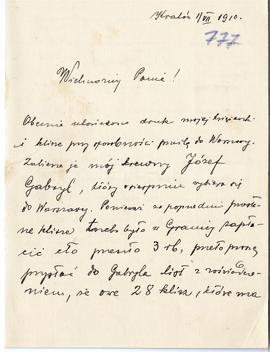 Kraków 1/VII 1910.
777
Wielmożny Panie!
Obecnie ukończono druk mojej książeczki
i klisze przy sposobności prześlę do Warszawy.
Zabierze je mój krewny Józef
Gabryl, który w sierpniu wybiera się
do Warszawy. Ponieważ za poprzednio przesła-
ne klisze trzeba było w Granicy zapła-
cić cło przeszło 3 rb, przeto proszę
przysłać do Gabryla list z poświadcze-
niem, że owe 28 klisz, które ma